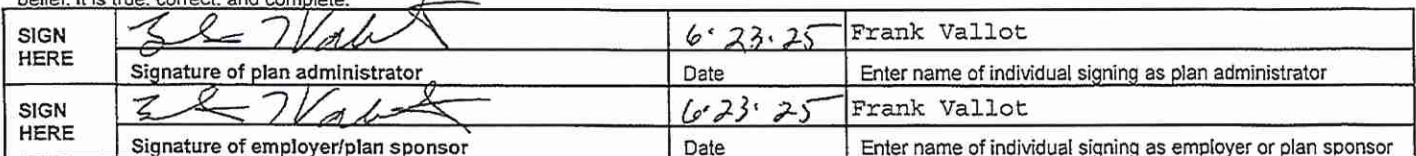 belief, it is true, correct, and complete.
SIGN HERE 6·23·25 Frank Vallot
Signature of plan administrator Date Enter name of individual signing as plan administrator
SIGN HERE 6·23·25 Frank Vallot
Signature of employer/plan sponsor Date Enter name of individual signing as employer or plan sponsor